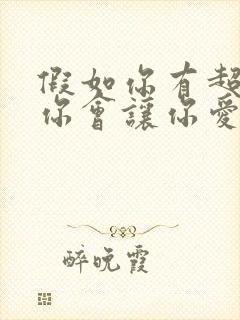 假如你有超
你會讓你愛
醉晚霞